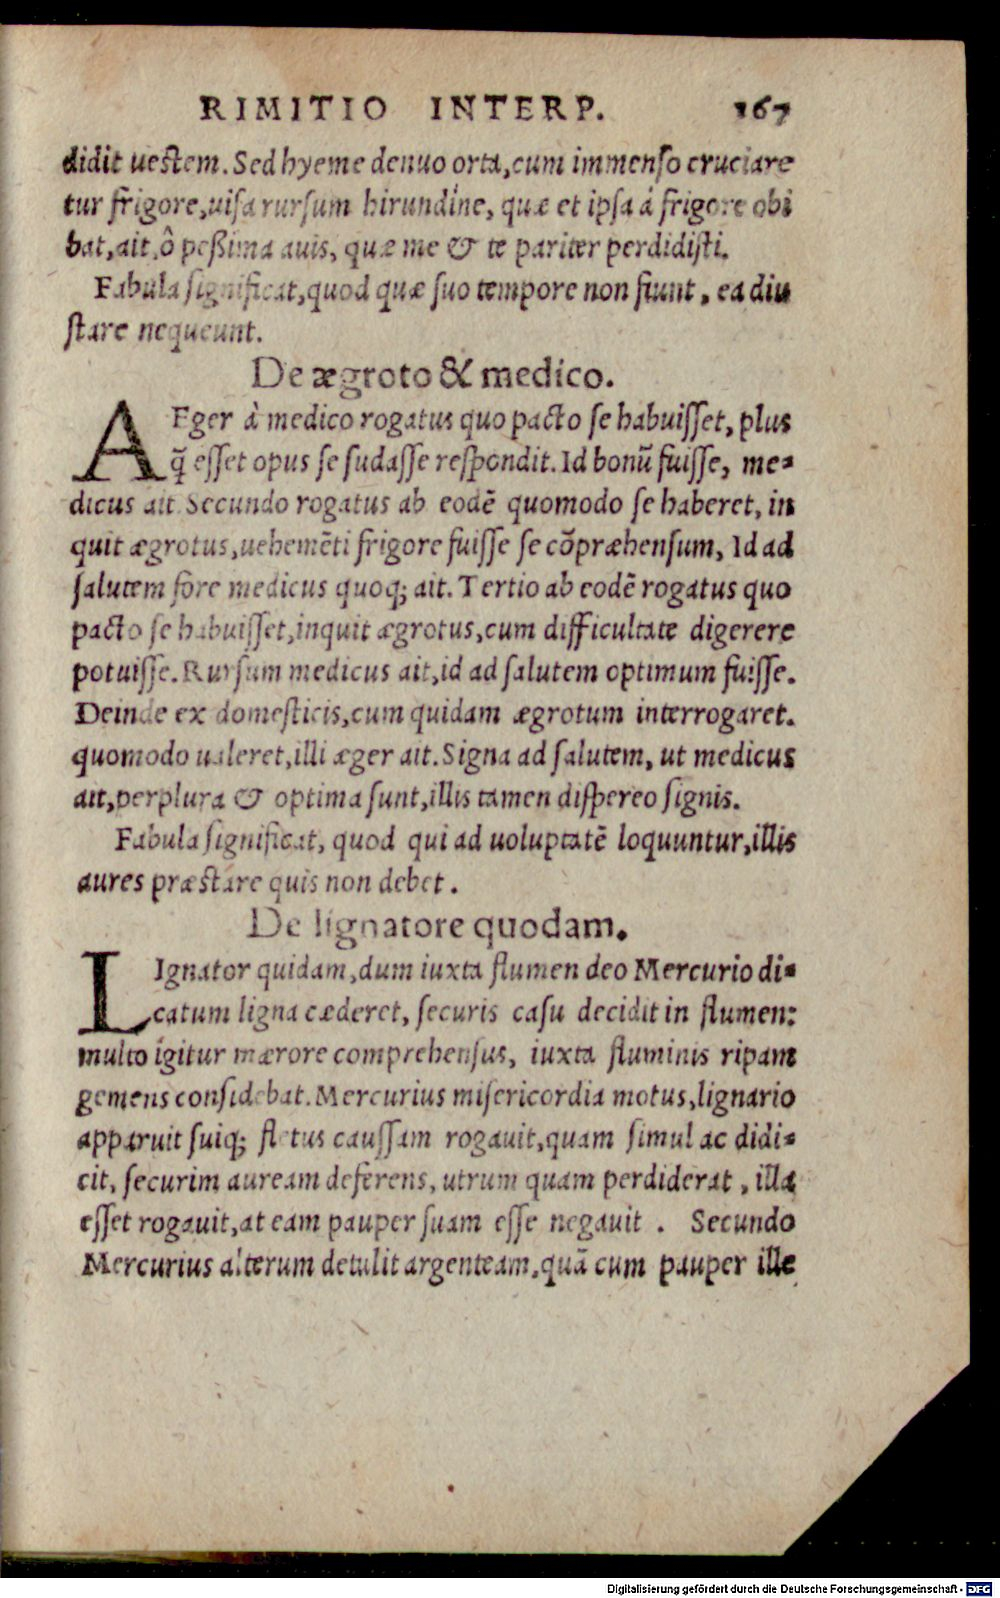 RIMITIO INTERP. 167
didit uestem. Sed hyeme denuo orta, cum immenso cruciare
tur frigore, uisa rursum hirundine, quæ et ipsa á frigore obi
bat, ait, ô peßima auis, quæ me & te pariter perdidisti.
Fabula significat, quod quæ suo tempore non fiunt, ea diu
stare nequeunt.
De ægroto & medico.
AEger à medico rogatus quo pacto se habuisset, plus
q̃ esset opus se sudasse respondit. Id bonũ fuisse, me-
dicus ait. Secundo rogatus ab eodẽ quomodo se haberet, in
quit ægrotus, uehemẽti frigore fuisse se cõpræhensum, Id ad
salutem fore medicus quoq; ait. Tertio ab eodẽ rogatus quo
pacto se habuisset, inquit ægrotus, cum difficultate digerere
potuisse. Rursum medicus ait, id ad salutem optimum fuisse.
Deinde ex domesticis, cum quidam ægrotum interrogaret.
quomodo ualeret, illi æger ait. Signa ad salutem, ut medicus
ait, perplura & optima sunt, illis tamen dispereo signis.
Fabula significat, quod qui ad uoluptatẽ loquuntur, illis
aures præstare quis non debet.
De lignatore quodam.
LIgnator quidam, dum iuxta flumen deo Mercurio di-
catum ligna cæderet, securis casu decidit in flumen:
multo igitur mærore comprehensus, iuxta fluminis ripam
gemens considebat. Mercurius misericordia motus, lignario
apparuit suiq; fletus caussam rogauit, quam simul ac didi-
cit, securim auream deferens, utrum quam perdiderat, illa
esset rogauit, at eam pauper suam esse negauit. Secundo
Mercurius alterum detulit argenteam, quã cum pauper ille
Digitalisierung gefördert durch die Deutsche Forschungsgemeinschaft - DFG